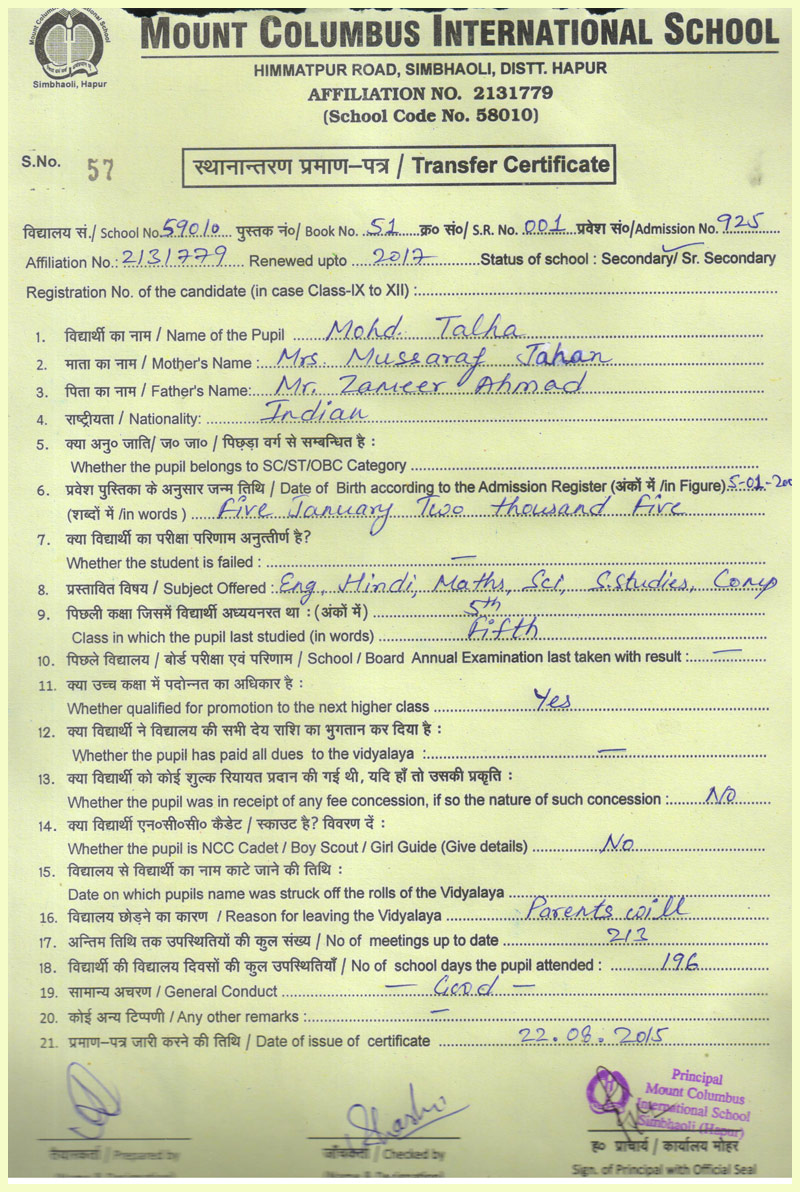 Mount Columbus International School
Simbhaoli, Hapur
MOUNT COLUMBUS INTERNATIONAL SCHOOL
HIMMATPUR ROAD, SIMBHAOLI, DISTT. HAPUR
AFFILIATION NO. 2131779
(School Code No. 58010)
S.No. 57
स्थानान्तरण प्रमाण–पत्र / Transfer Certificate
विद्यालय सं./ School No. 59010 पुस्तक नं०/ Book No. 51 क्र० सं०/ S.R. No. 001 प्रवेश सं०/Admission No. 925
Affiliation No.: 2131779 Renewed upto 2017 Status of school : Secondary/ Sr. Secondary
Registration No. of the candidate (in case Class-IX to XII) :
1. विद्यार्थी का नाम / Name of the Pupil Mohd. Talha
2. माता का नाम / Mother's Name : Mrs. Mussaraf Jahan
3. पिता का नाम / Father's Name: Mr. Zameer Ahmad
4. राष्ट्रीयता / Nationality: Indian
5. क्या अनु० जाति/ ज० जा० / पिछड़ा वर्ग से सम्बन्धित है :
Whether the pupil belongs to SC/ST/OBC Category
6. प्रवेश पुस्तिका के अनुसार जन्म तिथि / Date of Birth according to the Admission Register (अंकों में /in Figure) 5-01-200
(शब्दों में /in words ) Five January Two thousand Five
7. क्या विद्यार्थी का परीक्षा परिणाम अनुत्तीर्ण है?
Whether the student is failed : —
8. प्रस्तावित विषय / Subject Offered : Eng, Hindi, Maths, Sci, S.Studies, Comp
9. पिछली कक्षा जिसमें विद्यार्थी अध्ययनरत था : (अंकों में) 5th
Class in which the pupil last studied (in words) Fifth
10. पिछले विद्यालय / बोर्ड परीक्षा एवं परिणाम / School / Board Annual Examination last taken with result : —
11. क्या उच्च कक्षा में पदोन्नत का अधिकार है :
Whether qualified for promotion to the next higher class Yes
12. क्या विद्यार्थी ने विद्यालय की सभी देय राशि का भुगतान कर दिया है :
Whether the pupil has paid all dues to the vidyalaya : —
13. क्या विद्यार्थी को कोई शुल्क रियायत प्रदान की गई थी, यदि हाँ तो उसकी प्रकृति :
Whether the pupil was in receipt of any fee concession, if so the nature of such concession : No
14. क्या विद्यार्थी एन०सी०सी० कैडेट / स्काउट है? विवरण दें :
Whether the pupil is NCC Cadet / Boy Scout / Girl Guide (Give details) No
15. विद्यालय से विद्यार्थी का नाम काटे जाने की तिथि :
Date on which pupils name was struck off the rolls of the Vidyalaya
16. विद्यालय छोड़ने का कारण / Reason for leaving the Vidyalaya Parents will
17. अन्तिम तिथि तक उपस्थितियों की कुल संख्य / No of meetings up to date 213
18. विद्यार्थी की विद्यालय दिवसों की कुल उपस्थितियाँ / No of school days the pupil attended : 196
19. सामान्य अचरण / General Conduct — Good —
20. कोई अन्य टिप्पणी / Any other remarks : —
21. प्रमाण–पत्र जारी करने की तिथि / Date of issue of certificate 22.08.2015
Principal
Mount Columbus
International School
Simbhaoli (Hapur)
तैयारकर्ता / Prepared by जाँचकर्ता / Checked by ह० प्राचार्य / कार्यालय मोहर
Sign. of Principal with Official Seal